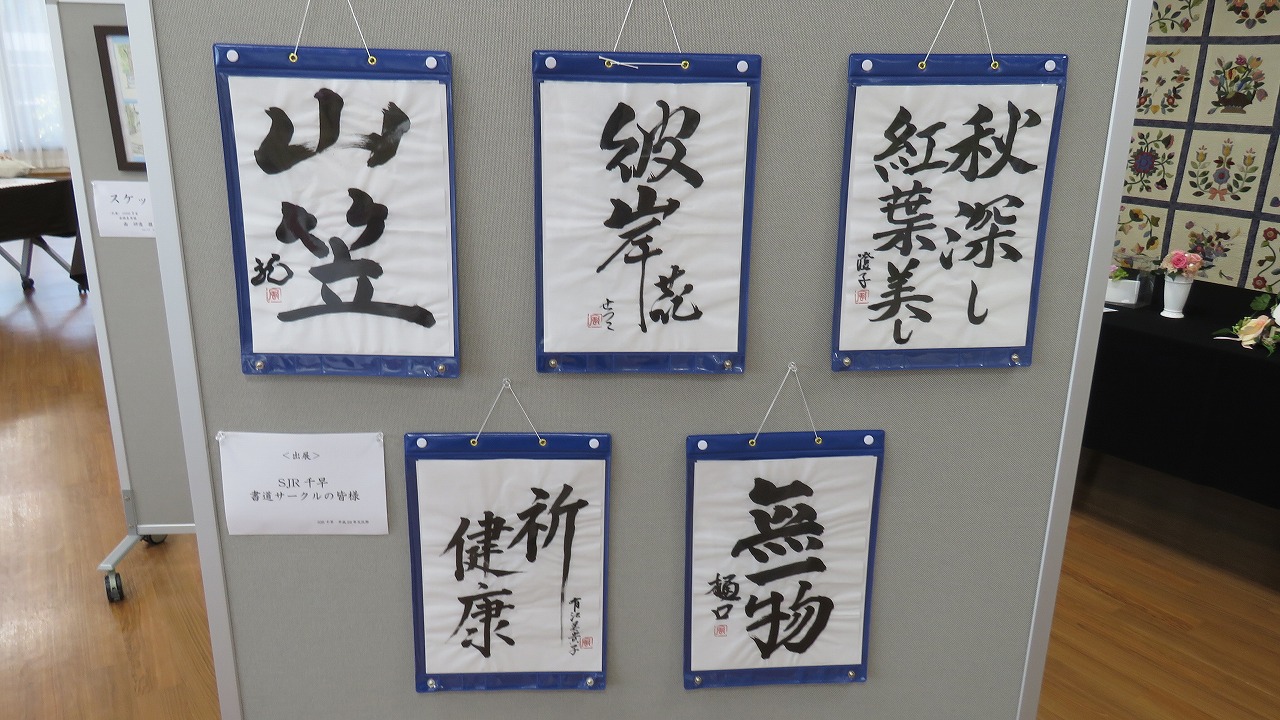 山笠
龍
彼岸花
せつこ
秋深し
紅葉美し
澄子
＜出展＞
SJR 千早
書道サークルの皆様
祈
健康
無一物
樋口
スケッ